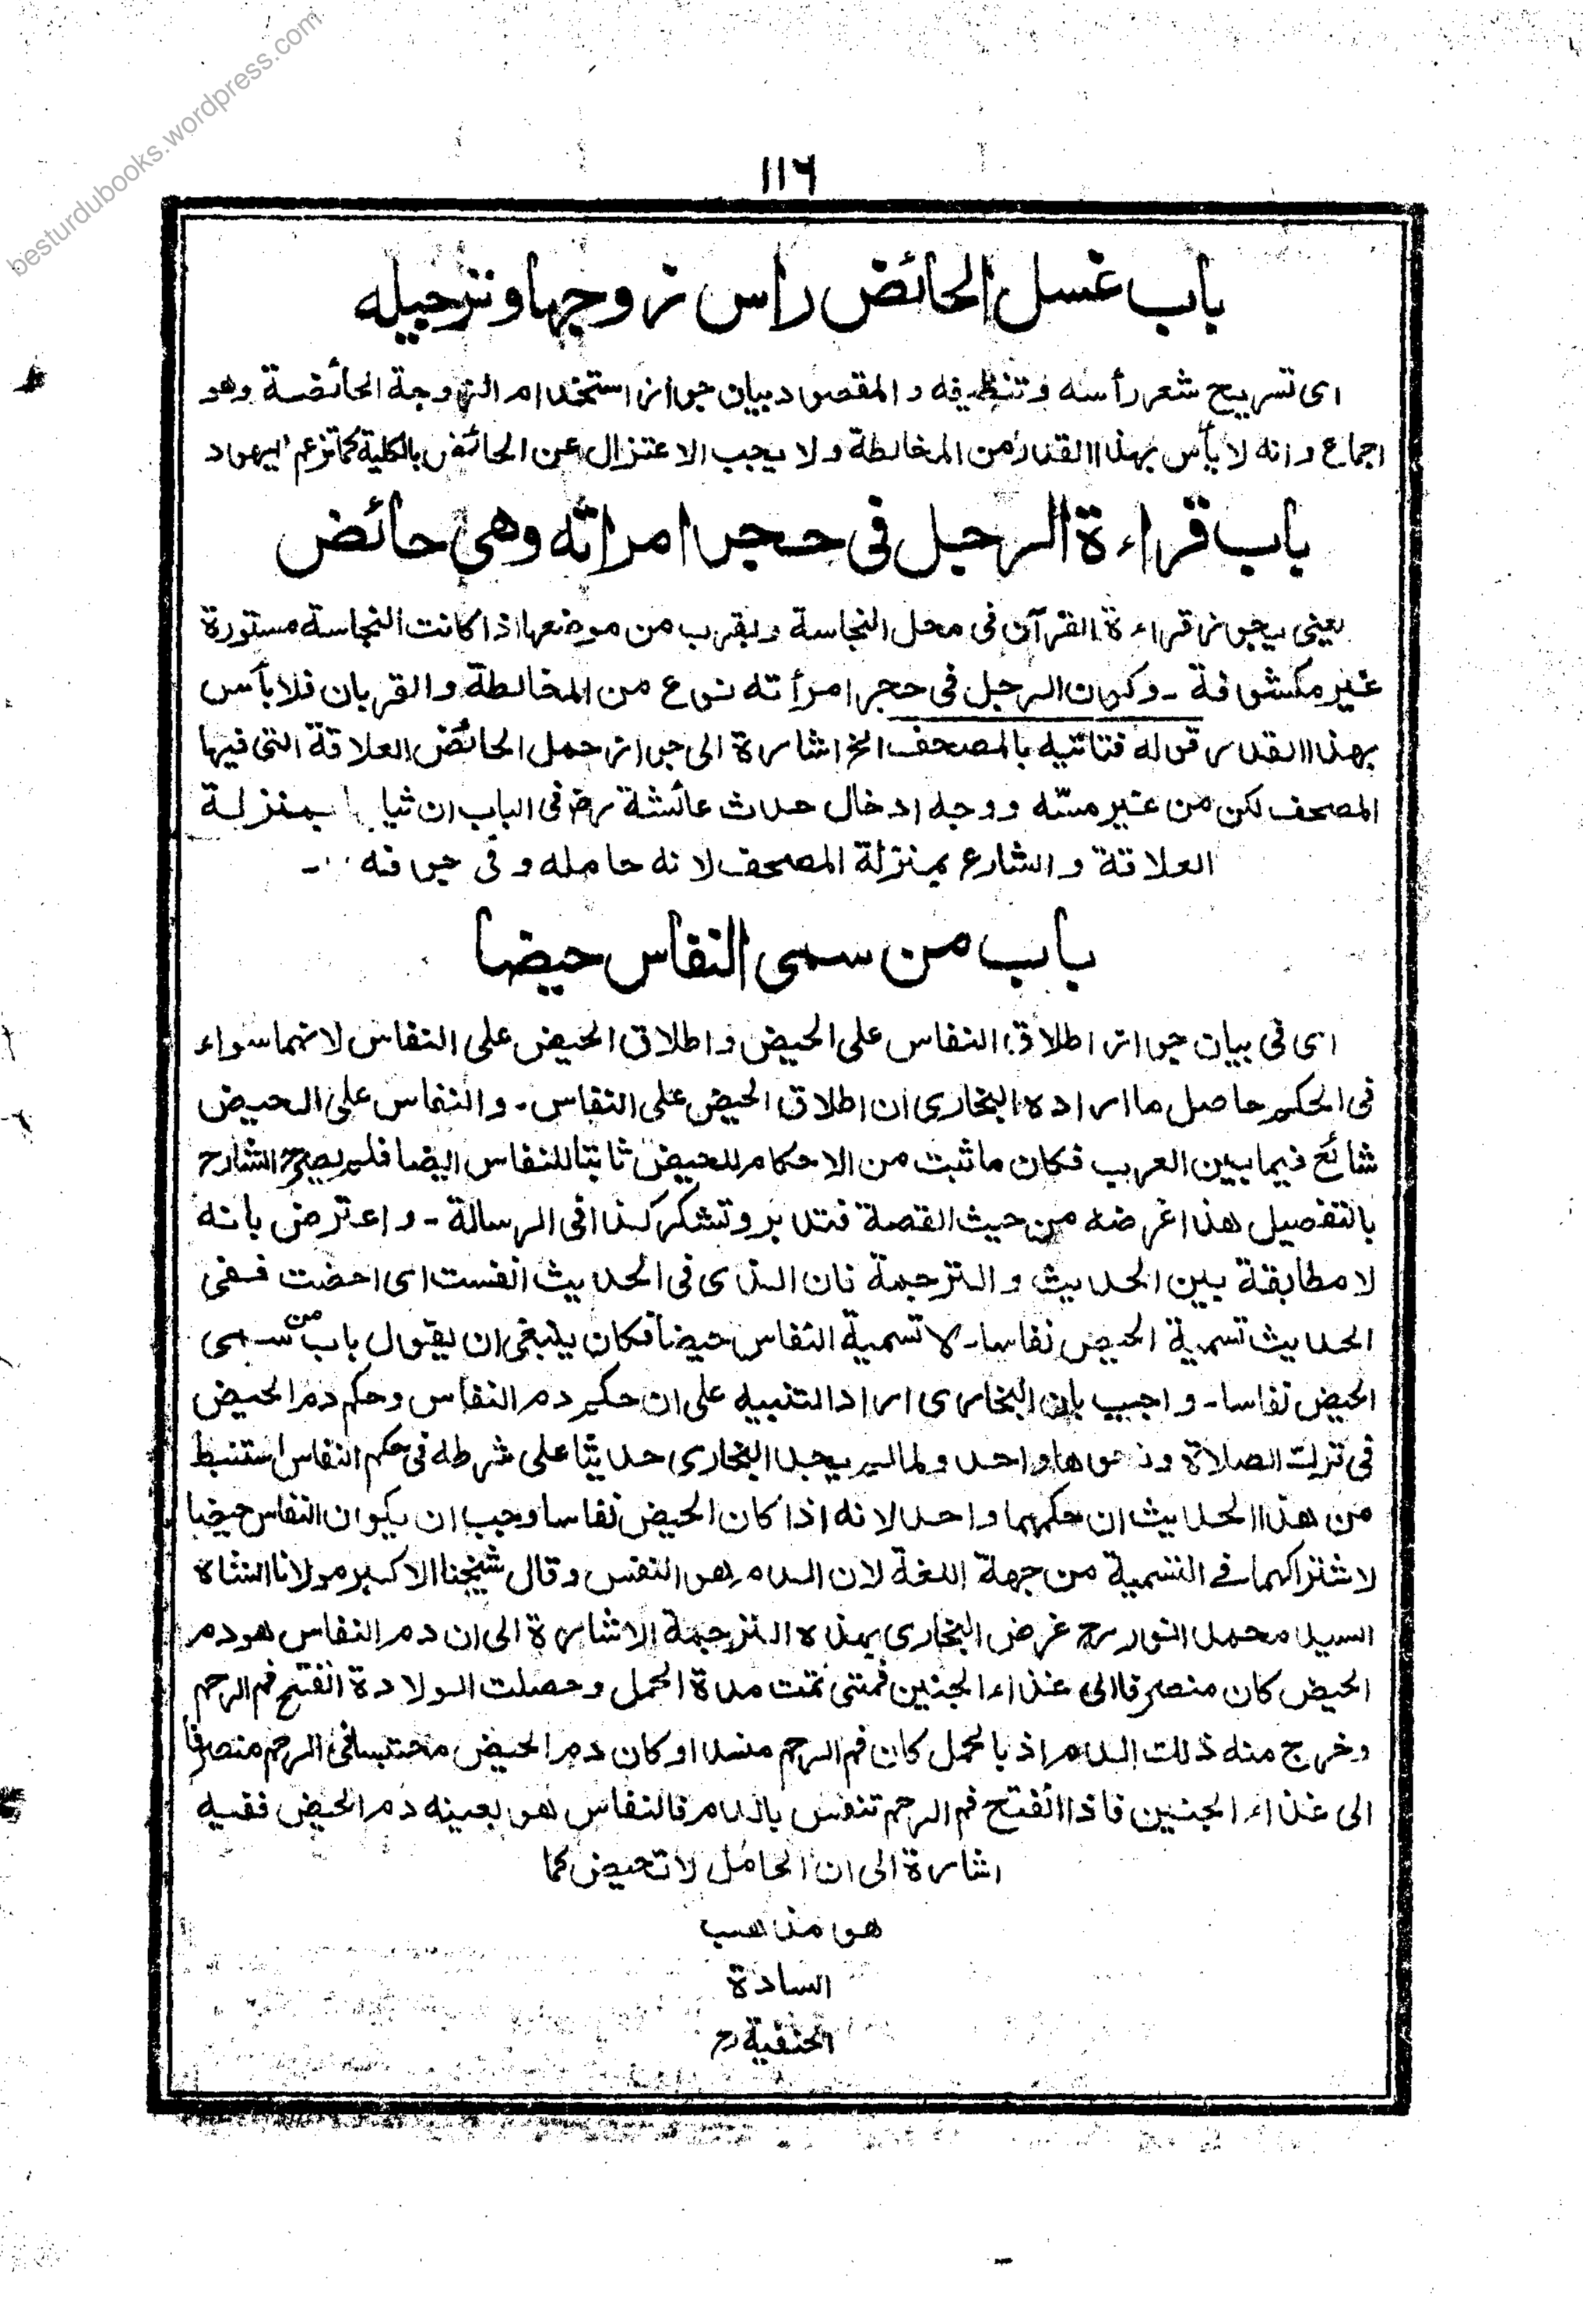 besturdubooks.wordpress.com
١١٦
باب غسل الحائض راس زوجها وترجيله
اى تسريح شعر رأسه وتنظيفه والمقصود بيان جواز استخدام الزوجة الحائضة وهو
اجماع وانه لا بأس بهذا القدر من المخالطة ولا يجب الاعتزال عن الحائض بالكلية كما تزعم اليهود
باب قراءة الرجل فى حجر امراته وهى حائض
يعنى يجوز قراءة القرآن فى محل النجاسة وبقرب من موضعها اذا كانت النجاسة مستورة
غير مكشوفة - وكون الرجل فى حجر امرأته نوع من المخالطة والقربان فلا بأس
بهذا القدر قوله فتاتيه بالمصحف الخ اشارة الى جواز حمل الحائض العلاقة التى فيها
المصحف لكن من غير مسّه ووجه ادخال حدث عائشة رض فى الباب ان ثيا بمنزلة
العلاقة والشارع بمنزلة المصحف لانه حامله وفى جوفه -
باب من سمى النفاس حيضا
اى فى بيان جواز اطلاق النفاس على الحيض واطلاق الحيض على النفاس لانهما سواء
فى الحكم حاصل ما اراده البخارى ان اطلاق الحيض على النفاس - والنفاس على الحيض
شائع فيما بين العرب فكان ما ثبت من الاحكام للحيض ثابتا للنفاس ايضا فلم يصرح الشارح
بالتفصيل هذا غرضه من حيث القصة فتدبر وتشكر كذا فى الرسالة - واعترض بانه
لا مطابقة بين الحديث والترجمة فان الذى فى الحديث انفست اى احضت ففى
الحديث تسمية الحيض نفاسا - لا تسمية النفاس حيضا فكان ينبغى ان يقول باب من سمى
الحيض نفاسا - واجيب بان البخارى اراد التنبيه على ان حكم دم النفاس وحكم دم الحيض
فى ترك الصلاة ونحوها واحد ولما لم يجد البخارى حديثا على شرطه فى حكم النفاس استنبط
من هذا الحديث ان حكمهما واحد لانه اذا كان الحيض نفاسا وجب ان يكون النفاس حيضا
لاشتراكهما فے التسمية من جهة اللغة لان الدم هو النفس وقال شيخنا الاكبر مولانا الشاه
السيد محمد انور رح غرض البخارى بهذه الترجمة الاشارة الى ان دم النفاس هو دم
الحيض كان منصرفا الى غذاء الجنين فمتى تمت مدة الحمل وحصلت الولادة انفتح فم الرحم
وخرج منه ذلك الدم اذ بالحمل كان فم الرحم منسدا وكان دم الحيض محتبسا فى الرحم منصرفا
الى غذاء الجنين فاذا انفتح فم الرحم تنفس بالدم فالنفاس هو بعينه دم الحيض ففيه
اشارة الى ان الحامل لا تحيض كما
هو مذهب
السادة
الحنفية رح